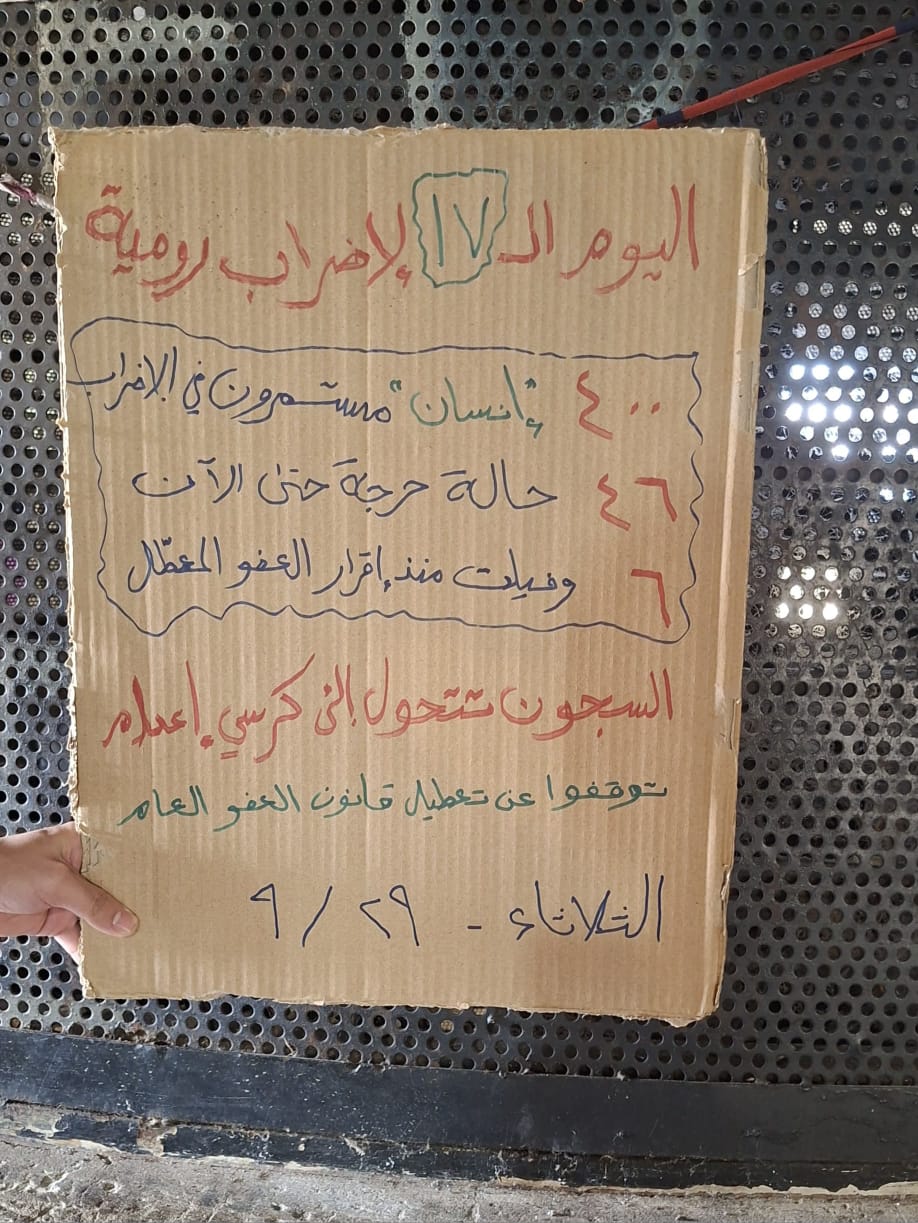 اليوم الـ ١٧ لإضراب رومية
٤٠٠ "إنسان" مستمرون في الإضراب
٤٦ حالة حرجة حتى الآن
٦ وفيات منذ إقرار العفو المعطّل
السجون تتحول إلى كرسي إعدام
توقفوا عن تعطيل قانون العفو العام
الثلاثاء - ٢٩ / ٩